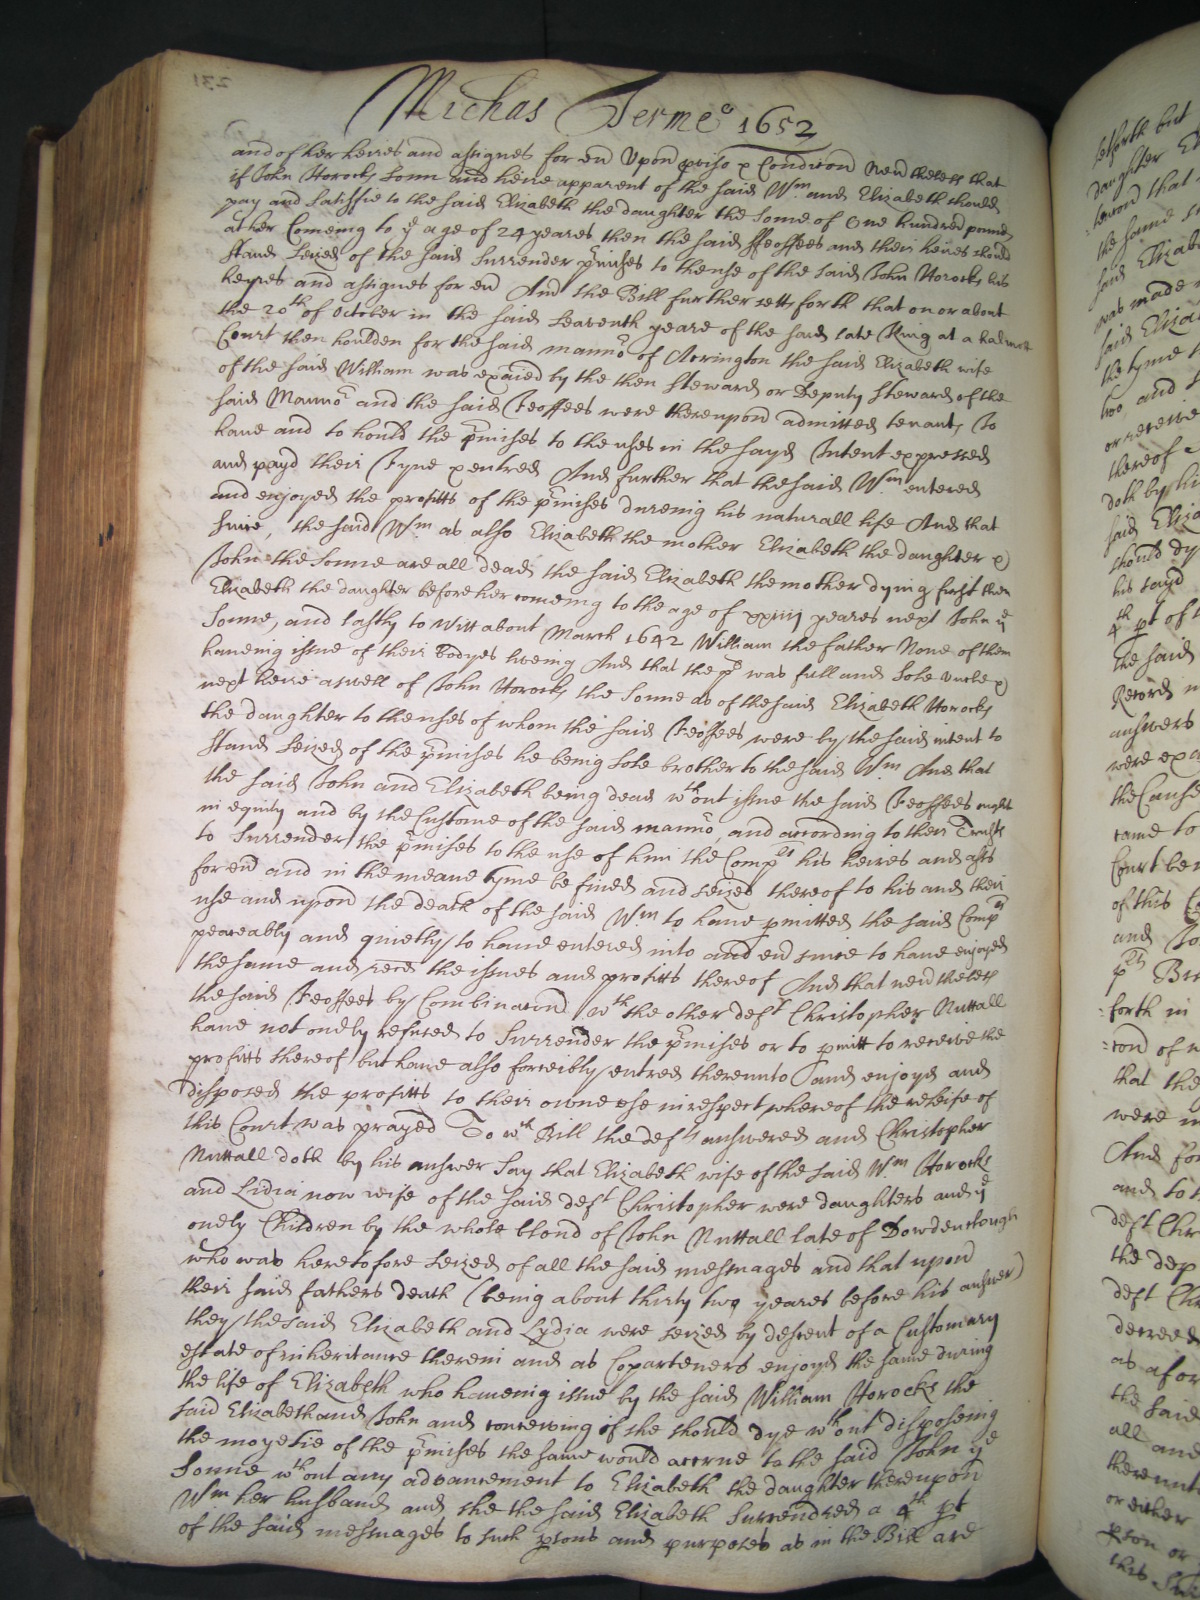 Michas Terme 1652
and of her heires and assignes for eu Upon proiso & Condicon Neutheless that
if John Horocks sonn and heire apparent of the said Wm and Elizabeth should
pay and satisfie to the said Elizabeth the daughter the some of One hundred pounds
at her Comeing to ye age of 24 yeares then the said ffeoffees and their heires should
stand seized of the said surrender pmises to the use of the said John Horocks his
heyres and assignes for eu And the Bill further setts forth that on or about
the 20th of October in the said seaventh yeare of the said late King at a halmott
Court then houlden for the said mannor of Accrington the said Elizabeth wife
of the said William was exaied by the then Steward or Deputy Steward of the
said Mannor and the said Feoffees were thereupon admitted tenants To
haue and to hould the pmises to the uses in the sayd Intent expressed
and payd their Fyne & entred And further that the said Wm entered
and enjoyed the profitts of the pmises dureing his naturall life And that
since, the said Wm as also Elizabeth the mother Elizabeth the daughter &
John the Sonne are all dead the said Elizabeth the mother dying first then
Elizabeth the daughter before her comeing to the age of xxiiij yeares next John ye
Sonne, and lastly to witt about March 1642 William the father None of them
haueing issue of their Bodyes liveing And that the pt was full and Sole Uncle &
next heire aswell of John Horocks the Sonne as of the said Elizabeth Horocks
the daughter to the uses of whom the said Feoffees were by the said intent to
stand seized of the pmises he being sole brother to the said Wm And that
the said John and Elizabeth being dead wthout issue the said Feoffees ought
in equity and by the Custome of the said mannor, and according to their Trusts
to Surrender the pmises to the use of him the Compt his heires and ass
for eu and in the meane tyme be fined and seized thereof to his and their
use and upon the death of the said Wm to haue pmitted the said Compt
peaceably and quietly to haue entered into and eu since to haue enjoyed
the same and recd the issues and profitts thereof And that neutheless
the said Feoffees by Combinacon wth the other deft Christopher Nuttall
haue not onely refused to Surrender the pmises or to pmitt to receive the
profitts thereof but haue also forceibly entred thereunto and enjoyd and
disposed the profitts to their owne use in respect whereof the releife of
this Court was prayed To wch Bill the defts answered and Christopher
Nuttall doth by his answer Say that Elizabeth wife of the said Wm Horocks
and Lidia now wife of the said deft Christopher were daughters and ye
onely Children by the whole blood of John Nuttall late of
who was heretofore seized of all the said messuages and that upon
their said fathers death (being about thirty two yeares before his answer)
they the said Elizabeth and Lydia were seized by descent of a Customary
estate of inheritance therein and as Coparteners enjoyd the same during
the life of Elizabeth who haueing issue by the said William Horocks the
said Elizabeth and John and conceiving if she should dye wthout disposeing
the moyetie of the pmises the same would accrue to the said John ye
Sonne wthout any advancement to Elizabeth the daughter thereupon
Wm her husband and she the said Elizabeth Surrendred a 4th pt
of the said messuages to such psons and purposes as in the Bill are